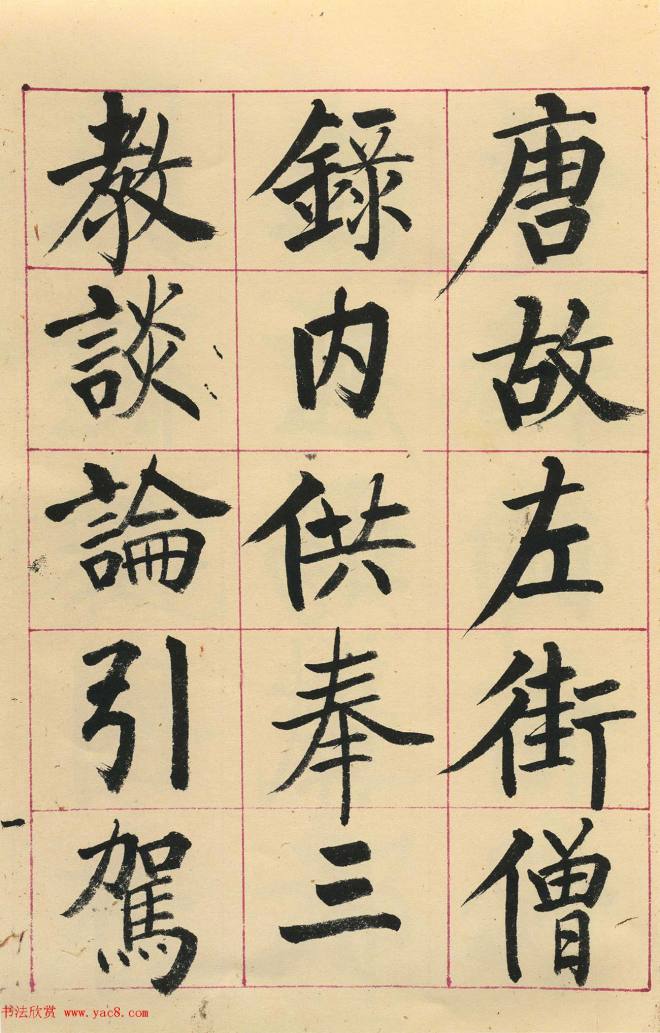 唐故左街僧
錄内供奉三
教談論引駕
一
书法欣赏 www.yac8.com